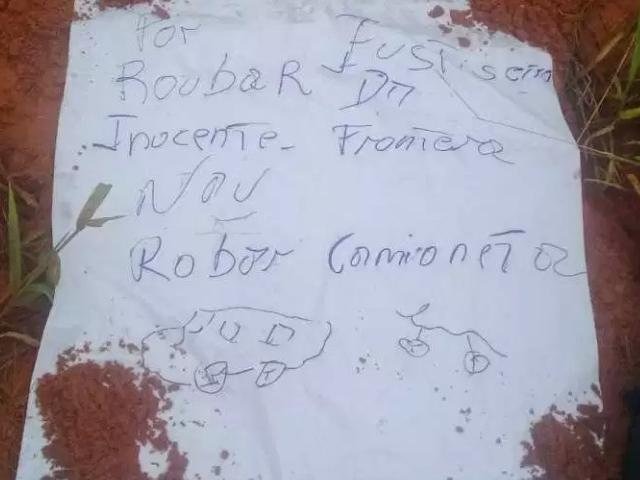 Por Justisero
RoubaR Da
Inocente- Frontera
Nau
Robar Camioneta